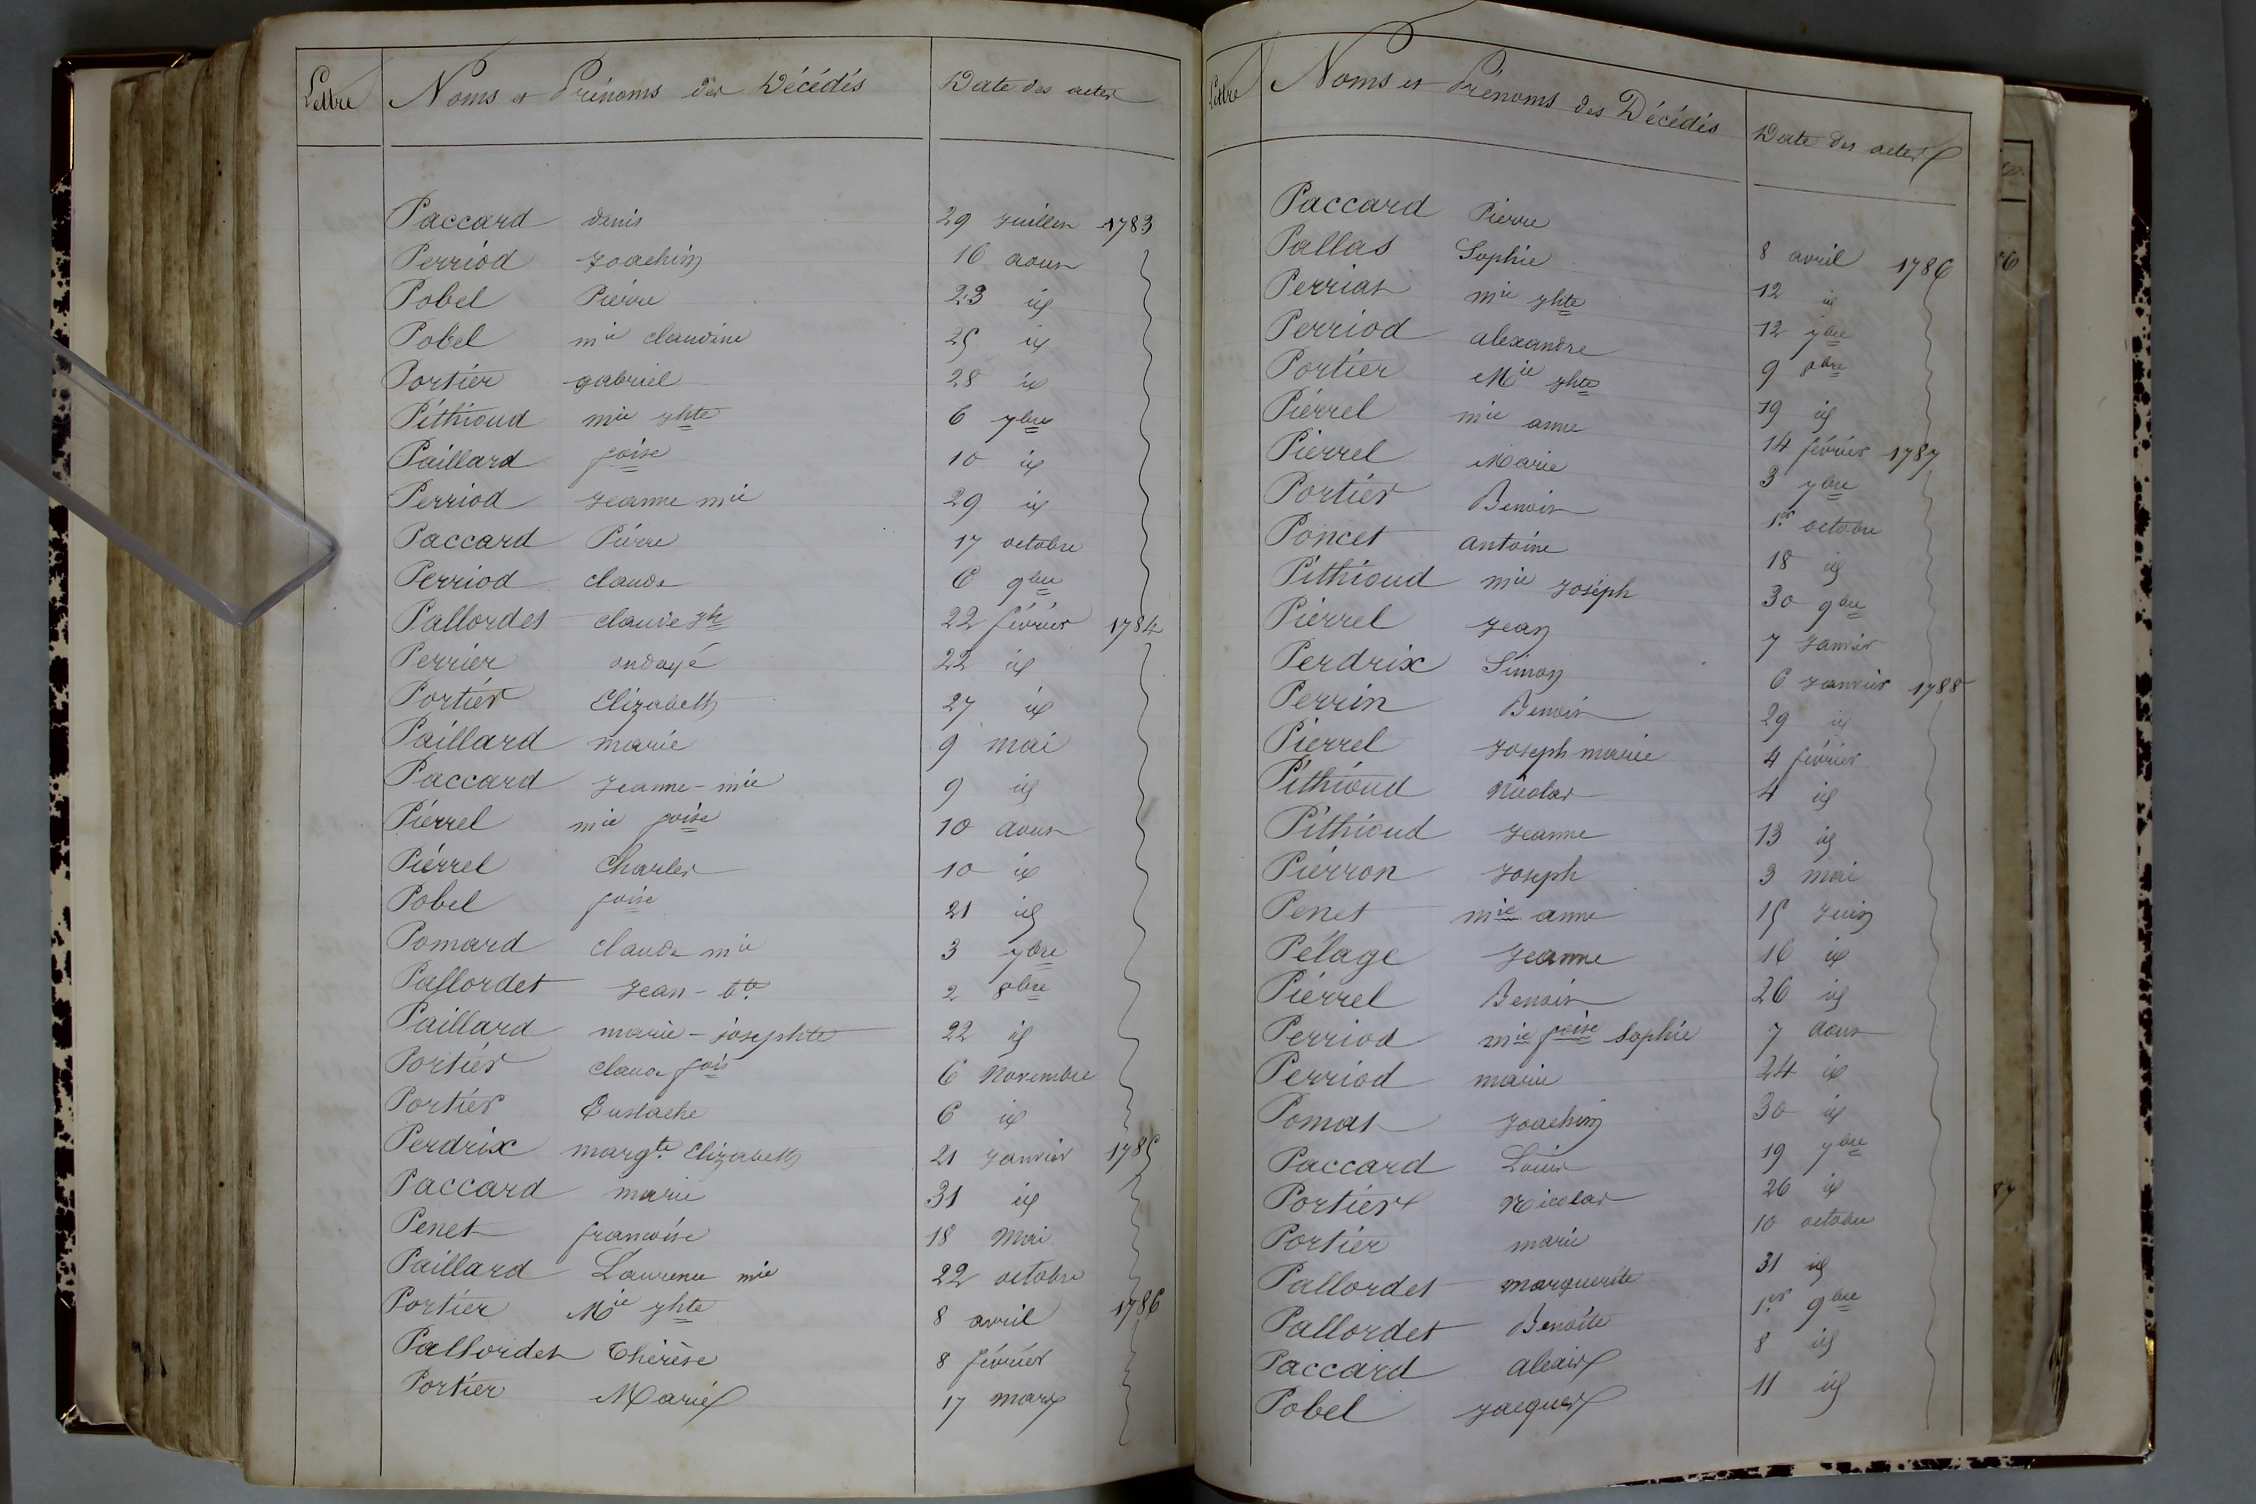 Lettre Noms et Prénoms des Décédés Date des actes
Paccard denis 29 Juillet 1783
Perriod Joachim 16 aout
Pobel Pierre 23 id
Pobel mie claudine 25 id
Portier gabriel 28 id
Pithioud mie jhte 6 7bre
Paillard foise 10 id
Perriod Jeanne mie 29 id
Paccard Pierre 17 octobre
Perriod claude 6 9bre
Pallordet claude jh 22 février 1784
Perrier ondoyé 22 id
Portier Elizabeth 27 id
Paillard marie 9 mai
Paccard Jeanne-mie 9 id
Pierrel mie foise 10 aout
Pierrel Charles 10 id
Pobel foise 21 id
Pomard claude mie 3 7bre
Pallordet Jean-bte 2 8bre
Paillard marie-josephte 22 id
Portier claude fois 6 Novembre
Portier Eustache 6 id
Perdrix margte Elizabeth 21 Janvier 1785
Paccard marie 31 id
Penet francoise 18 Mai
Paillard Laurence mie 22 octobre
Portier Mie jhte 8 avril 1786
Pallordet Thérèse 8 février
Portier Marie 17 mars
Lettre Noms et Prénoms des Décédés Date des actes
Paccard Pierre 8 avril 1786
Pallas Sophie 12 id
Perriat mie jhte 12 7bre
Perriod alexandre 9 8bre
Portier Mie jhte 19 id
Pierrel mie anne 14 février 1787
Pierrel Marie 3 7bre
Portier Benoit 1er octobre
Poncet antoine 18 id
Pithioud mie Joseph 30 9bre
Pierrel Jean 7 Janvier
Perdrix Simon 6 Janvier 1788
Perrin Benoit 29 id
Pierrel Joseph marie 4 février
Pithioud Nicolas 4 id
Pithioud Jeanne 13 id
Pierron Joseph 3 mai
Penet mie anne 15 Juin
Pélage Jeanne 16 id
Pierrel Benoit 26 id
Perriod mie foise Sophie 7 aout
Perriod marie 24 id
Pomat Joachim 30 id
Paccard Louis 19 7bre
Portier Nicolas 26 id
Portier marie 10 octobre
Pallordet marguerite 31 id
Pallordet Benoite 1er 9bre
Paccard alexis 8 id
Pobel Jacques 11 id